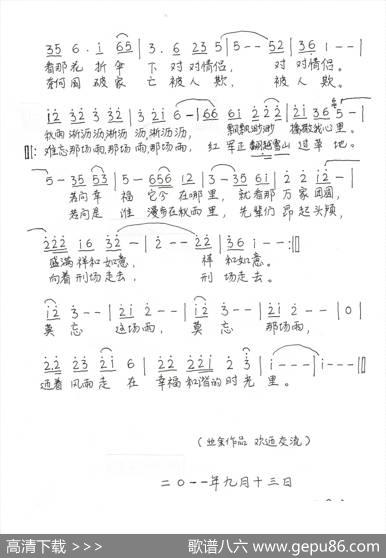 35 6. i 65 | 3. 6 23 5 | 5 - - 52 | 36 1 - - |
看那花折伞 下 对对情侣， 对 对情侣。
奈何国破家 亡 被人欺， 被 人欺。
秋雨淅沥沥淅沥 沥，淅沥沥， 飘飘渺渺 撞敲我心里。
难忘那场雨，那场雨，那场雨， 红 军正翻越雪山 过草地。
5 - 35 53 | 5 - 656 12 | 3 - 35 61 | 2 2 12 - |
若问幸 福 它今在哪里， 就看那 万家团圆，
若问是 谁 漫步在秋雨里， 先辈们 昂起头颅，
222 16 32 - | 2 - - 22 | 36 1 - - :||
盛满祥和如意， 祥 和如意。
向着刑场走去， 刑 场走去。
12 3 - - | 21 2 - - | 12 3 - - | 21 2 - - | 0 |
莫忘 这场雨， 莫忘 那场雨，
2.2 23 21 6 | 22 221 2 3 | i - - - | i - - - ||
迎着风雨走 在 幸福和谐的时光 里。
（丝弦作品 欢迎交流）
二〇一一年九月十三日
高清下载 >>>
歌谱八六 www.gepu86.com